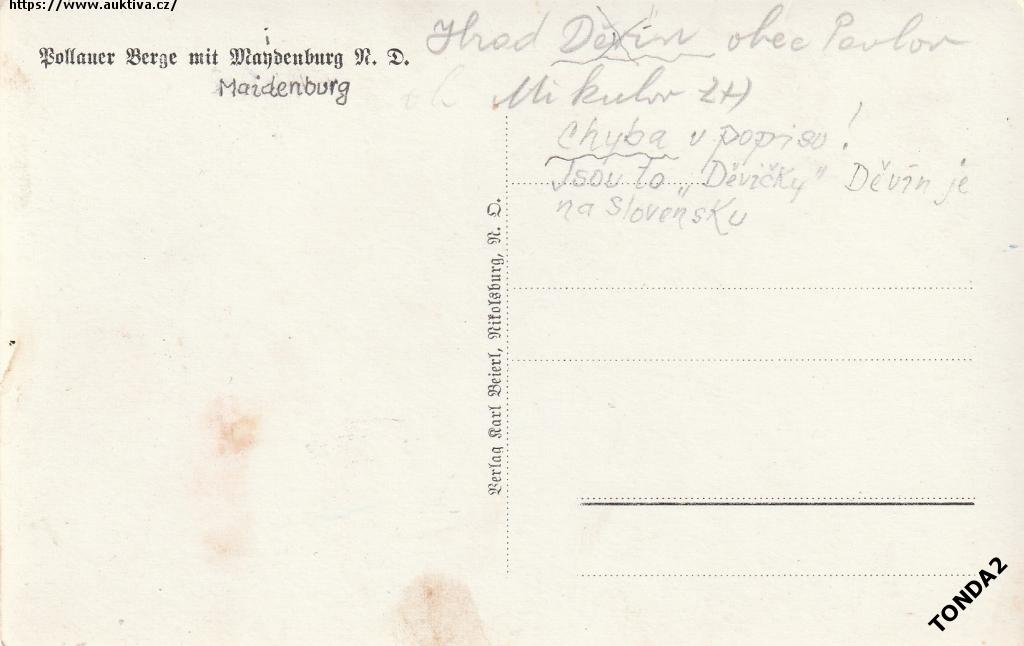 https://www.auktiva.cz/
Pollauer Berge mit Maydenburg N. D.
i
Maidenburg
Hrad Děvín obec Pavlov
Mikulov ZH
Chyba v popisu!
Jsou to „Děvičky" Děvín je
na Slovensku
Verlag Karl Beierl, Nikolsburg, N. D.
TONDA2